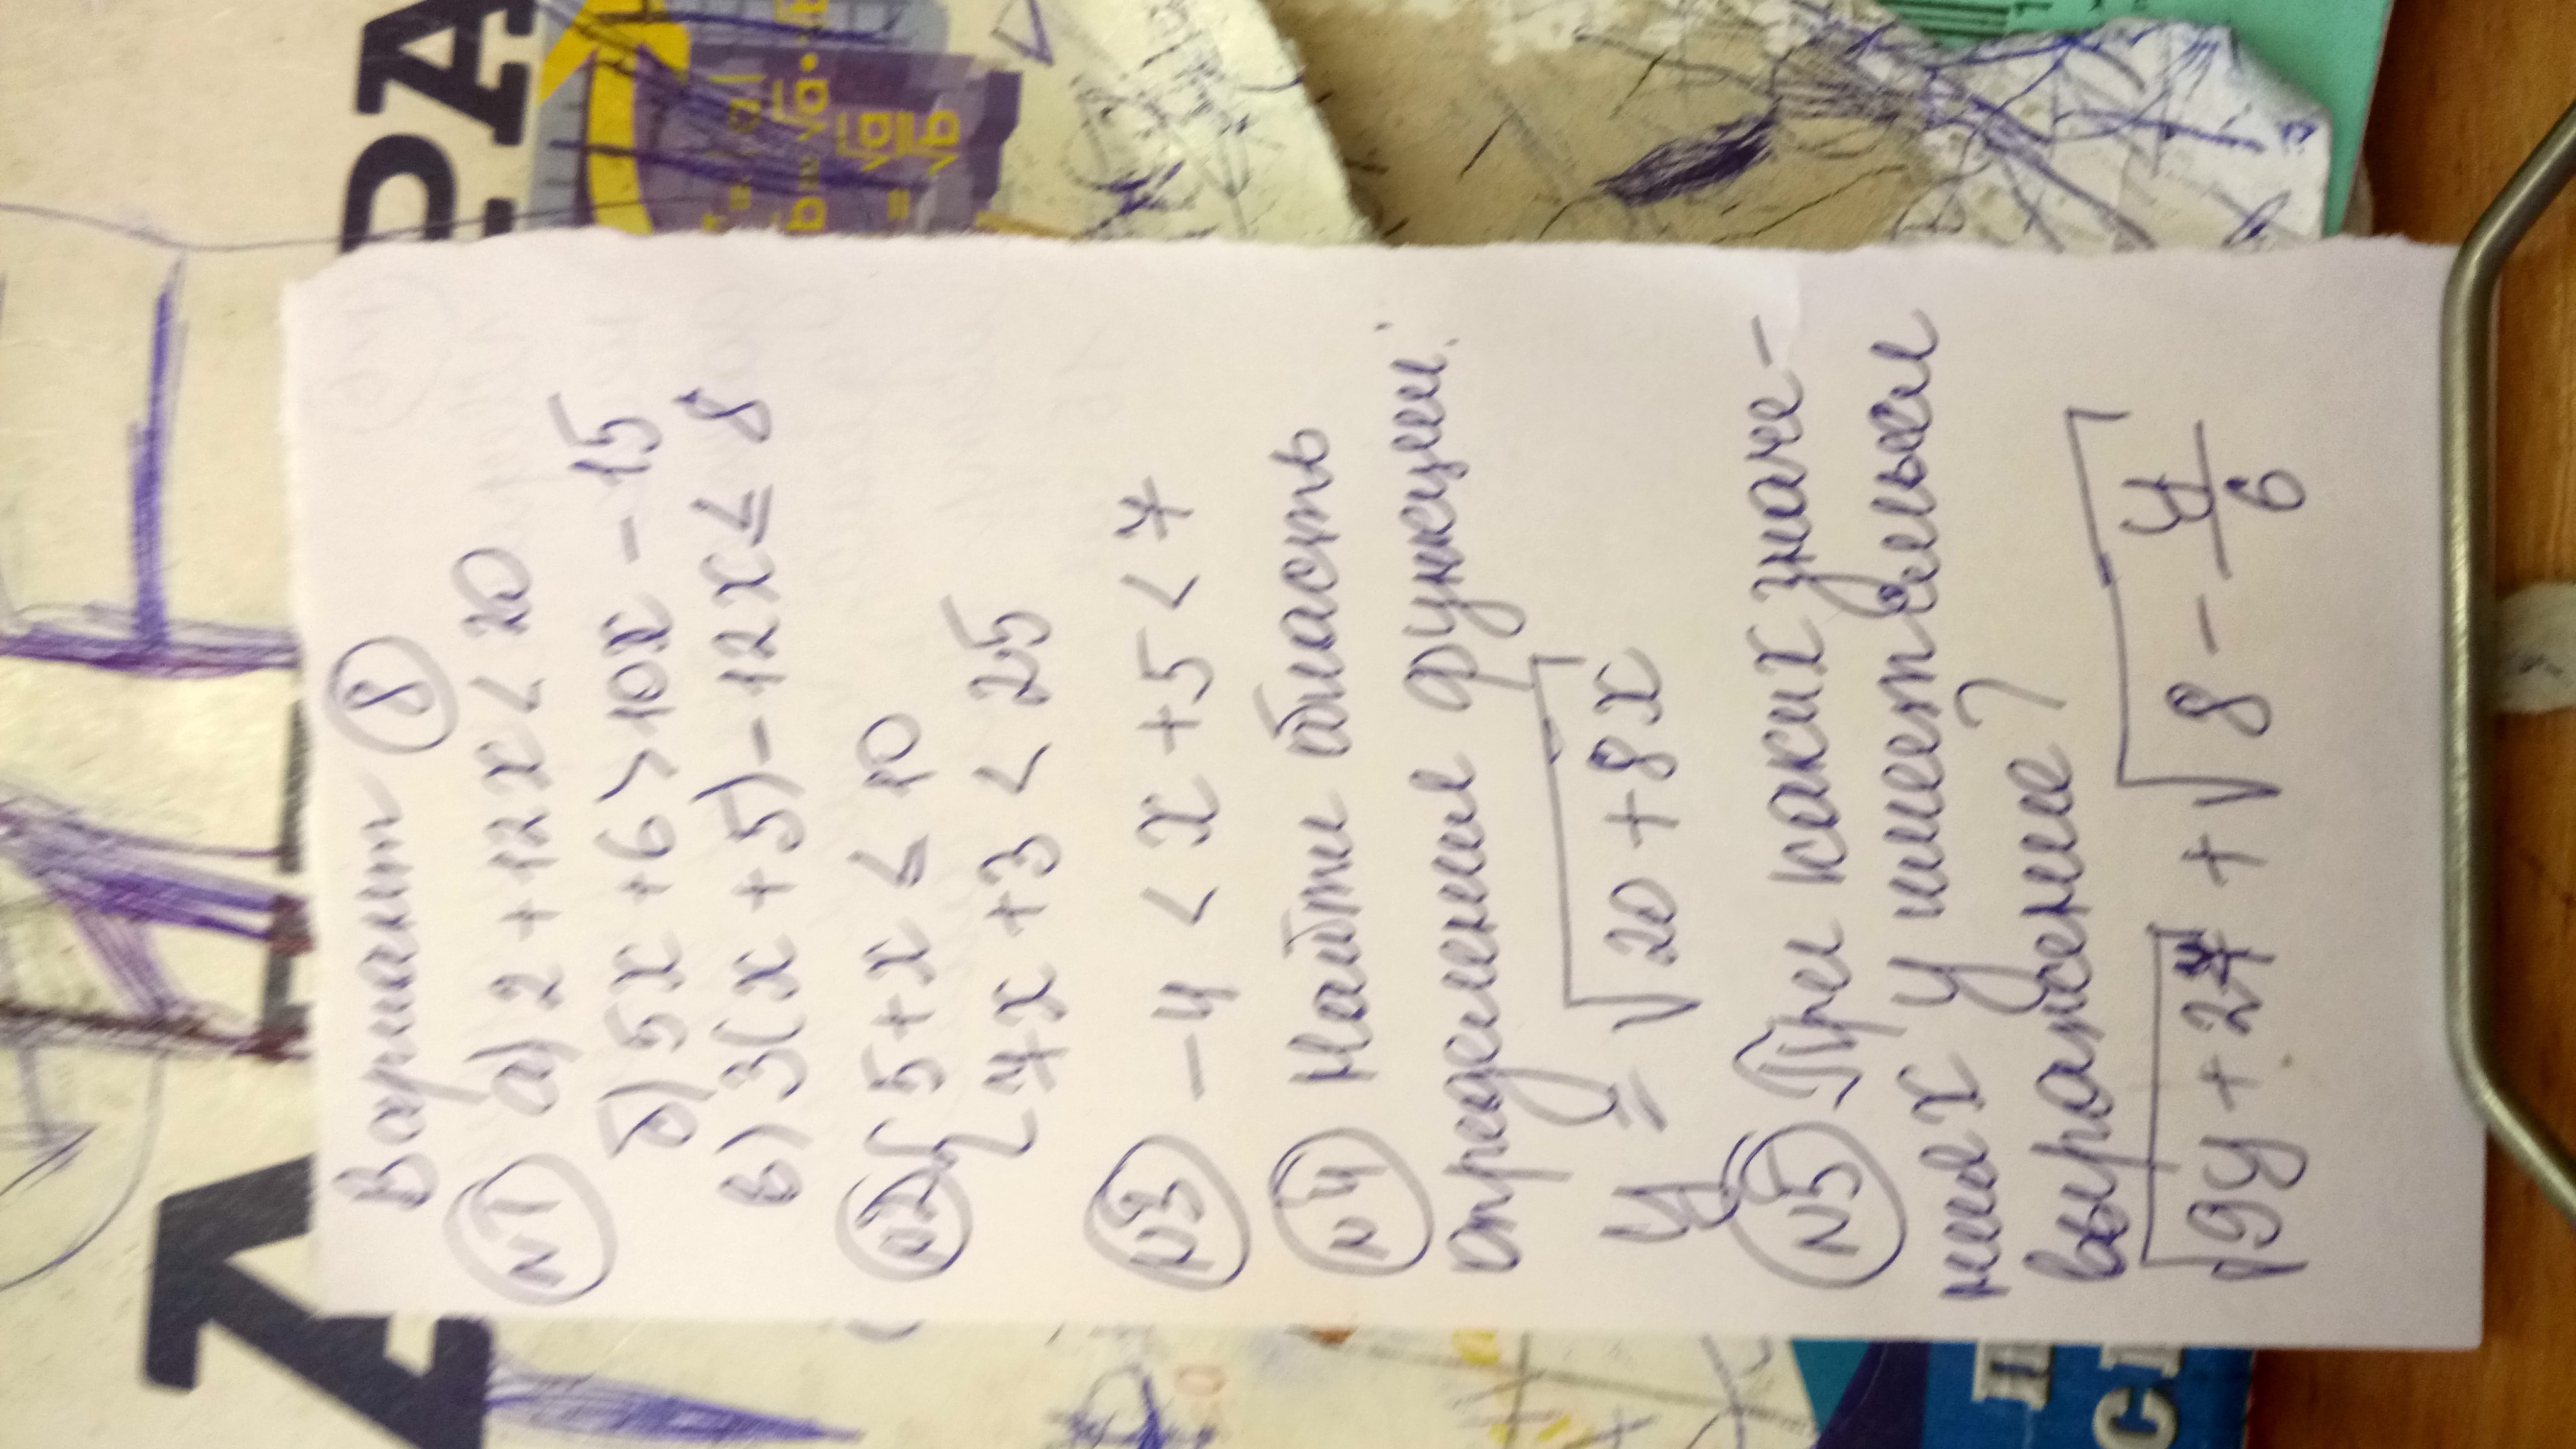 Вариант 8
N1 а) 2 + 12x < 20
б) 5x + 6 > 10x - 15
в) 3(x + 5) - 12x ≤ 8
N2 { 5 + x ≤ 10
4x + 3 < 25
N3 -4 < x + 5 < 7
N4 Найти область
определения функции:
y = √20 + 8x
N5 При каких значе-
ниях y имеет смысл
выражение?
√9y + 24 + √8 - y/6